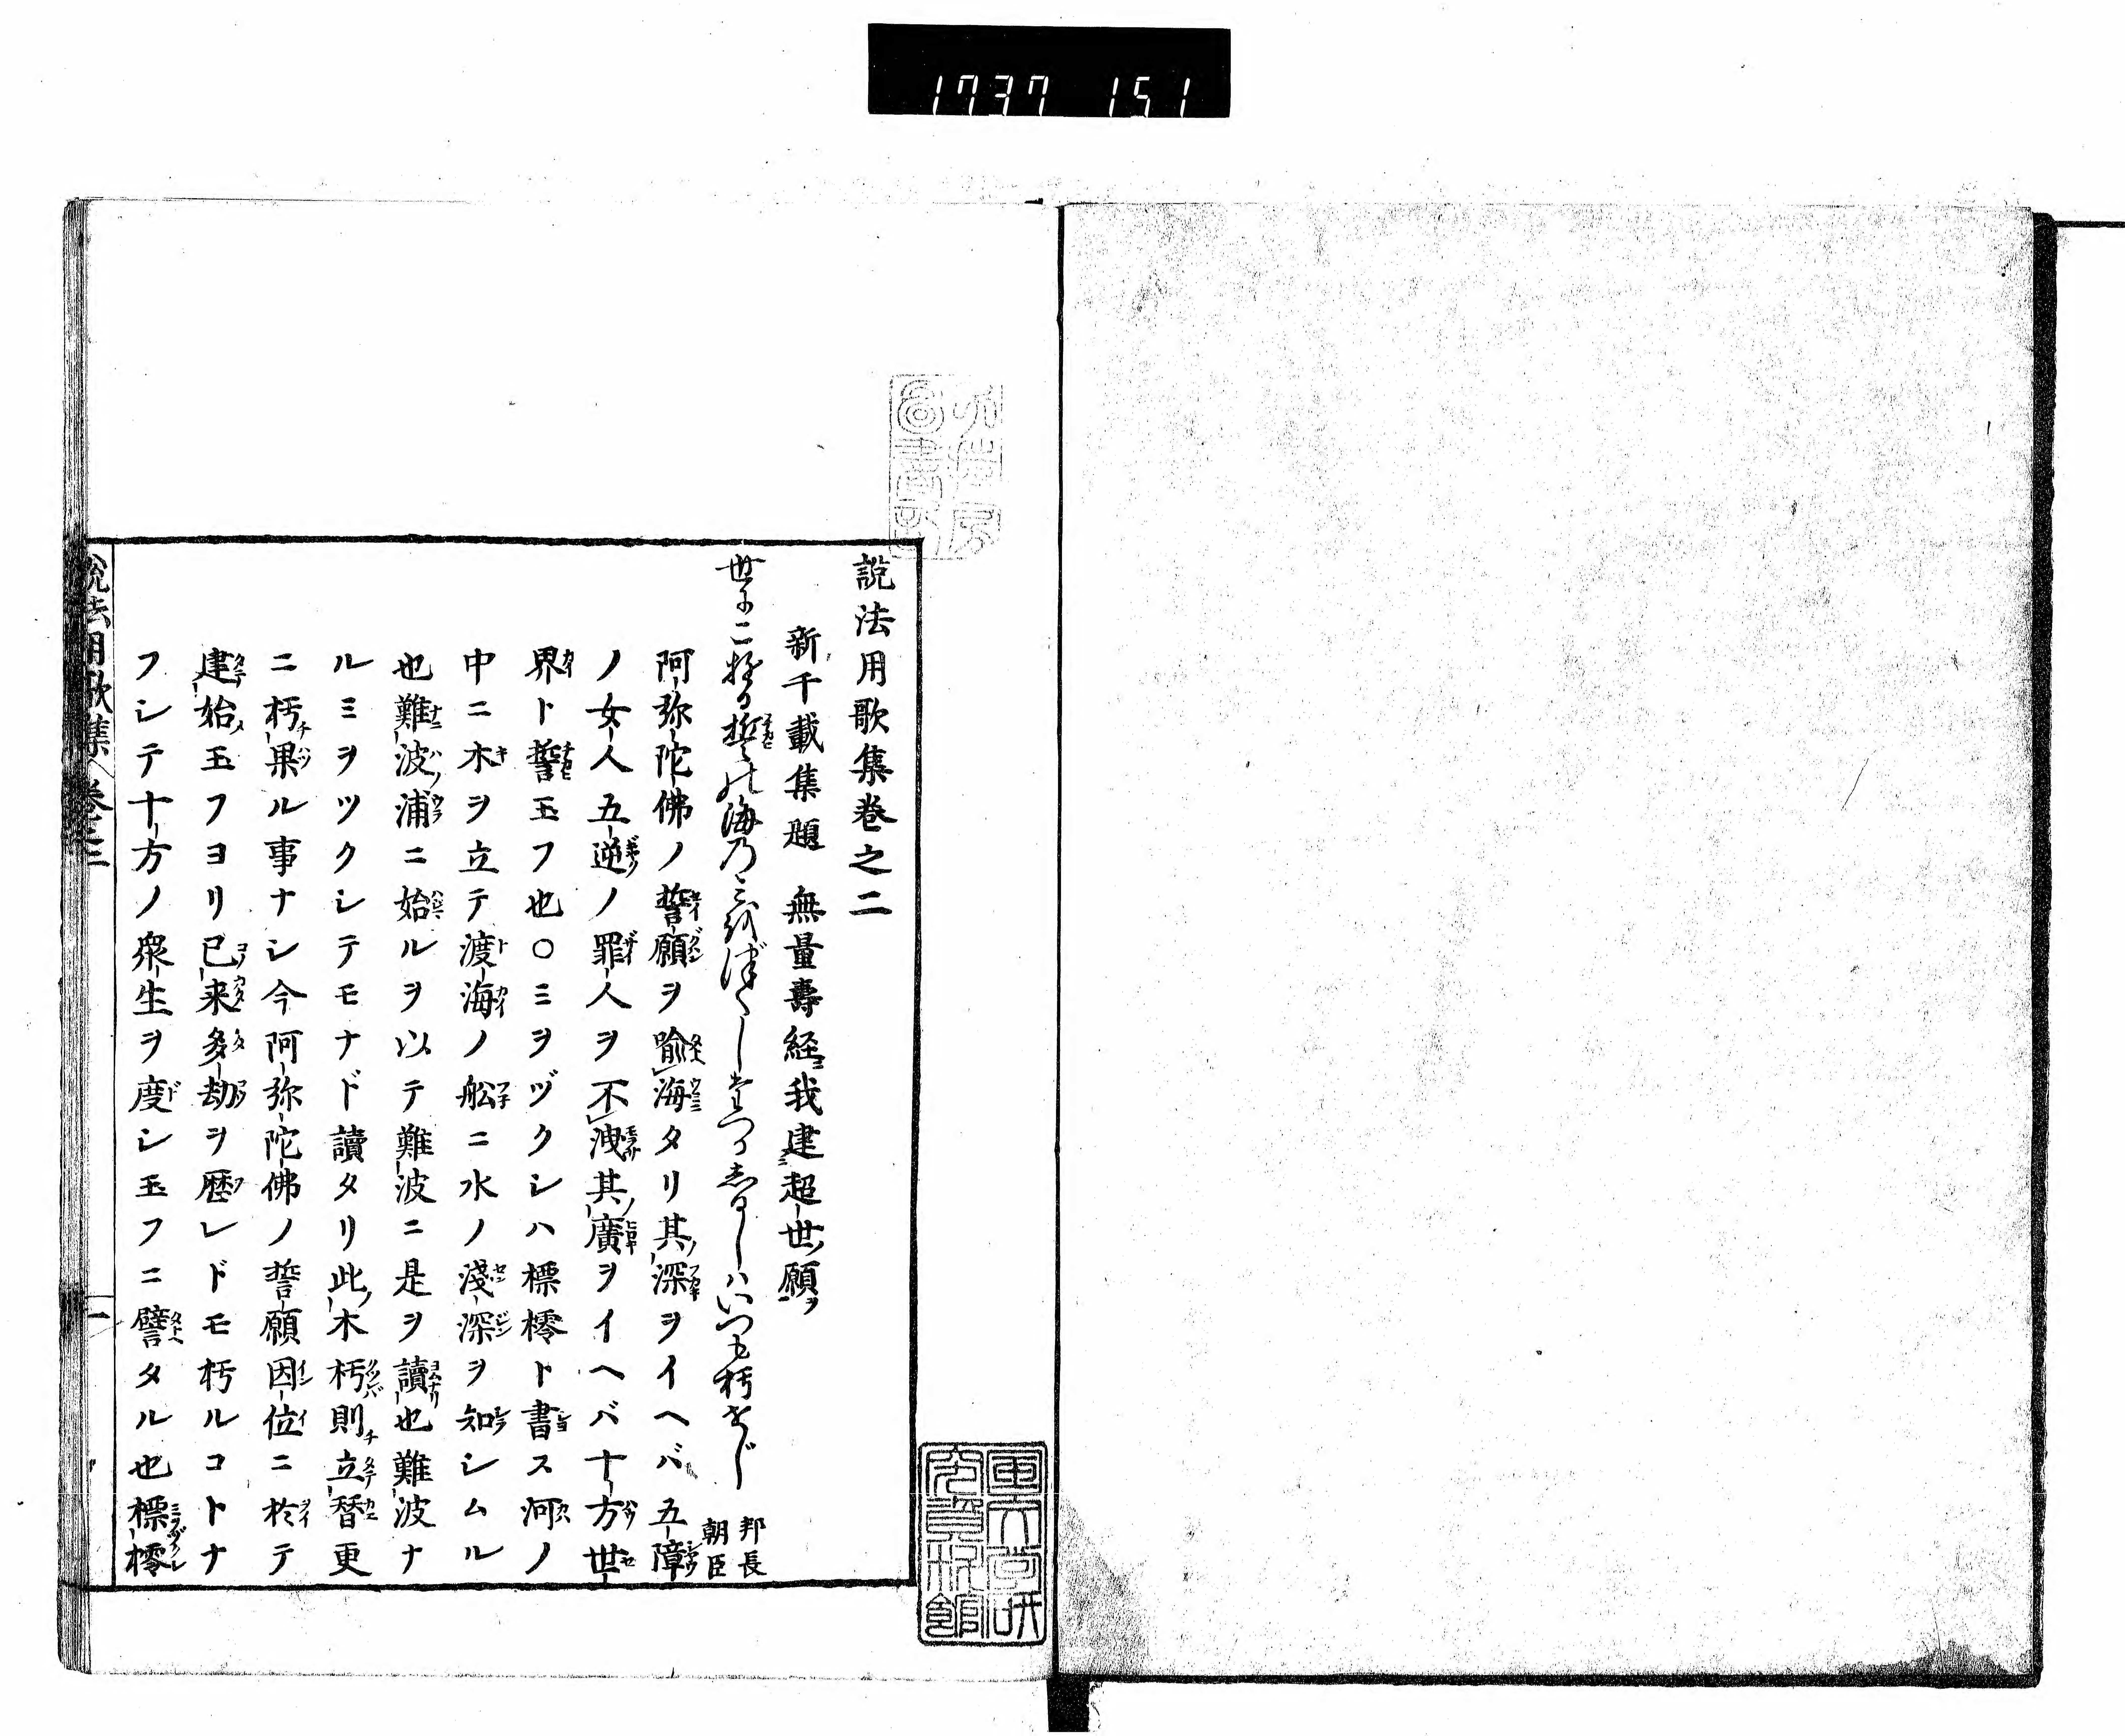 1737 151
説法用歌集巻之二
新千載集題 無量壽経我建超世願ヲ
世にこ誓の海乃しるしハいつも朽せじ 邦長朝臣
阿弥陀佛ノ誓願ヲ喩海タリ其深ヲイヘバ五障
ノ女人五逆ノ罪人ヲ不洩其廣ヲイヘバ十方世
界ト誓玉フ也○ミヲヅクシハ標橒ト書ス河ノ
中ニ木ヲ立テ渡海ノ舩ニ水ノ淺深ヲ知シムル
也難波浦ニ始ルヲ以テ難波ニ是ヲ讀也難波ナ
ルミヲツクシテモナド讀タリ此木朽則立替更
ニ朽果ル事ナシ今阿弥陀佛ノ誓願因位ニ於テ
建始玉フヨリ已来多劫ヲ歴レドモ朽ルコトナ
フシテ十方ノ衆生ヲ度シ玉フニ譬タル也標橒
説法用歌集 巻二 一